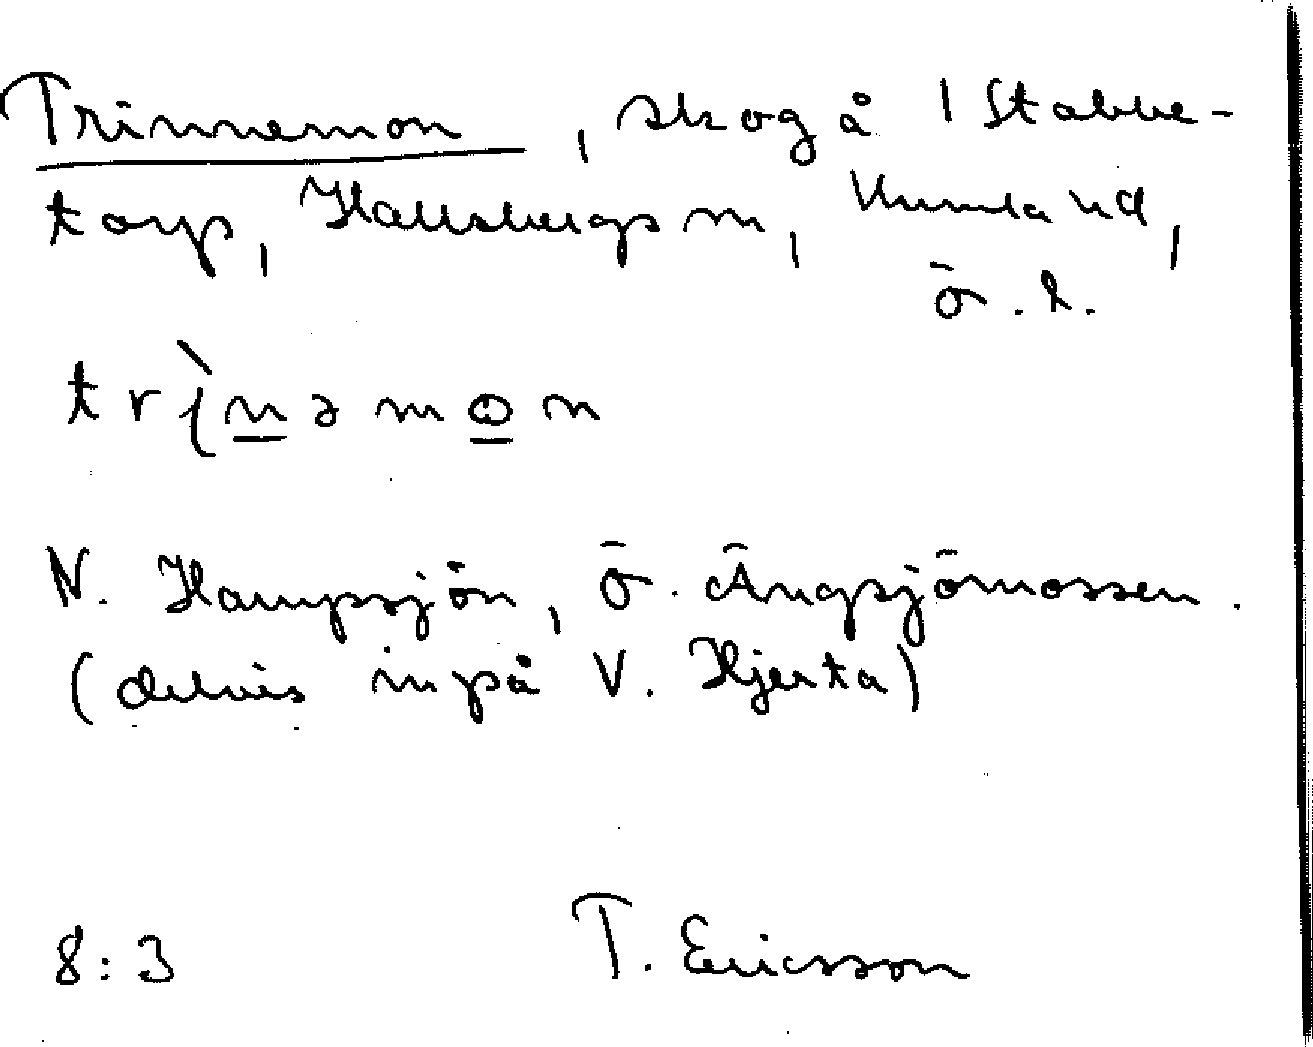 Trinnemon, skog å 1 Stabbe-
torp, Hallsbergs sn, Kumla hd,
ö. l.
trìnəmon
N. Hampsjön, Ö. Ängsjömossen.
(delvis inpå V. Hjerta)
8:3 T. Ericsson